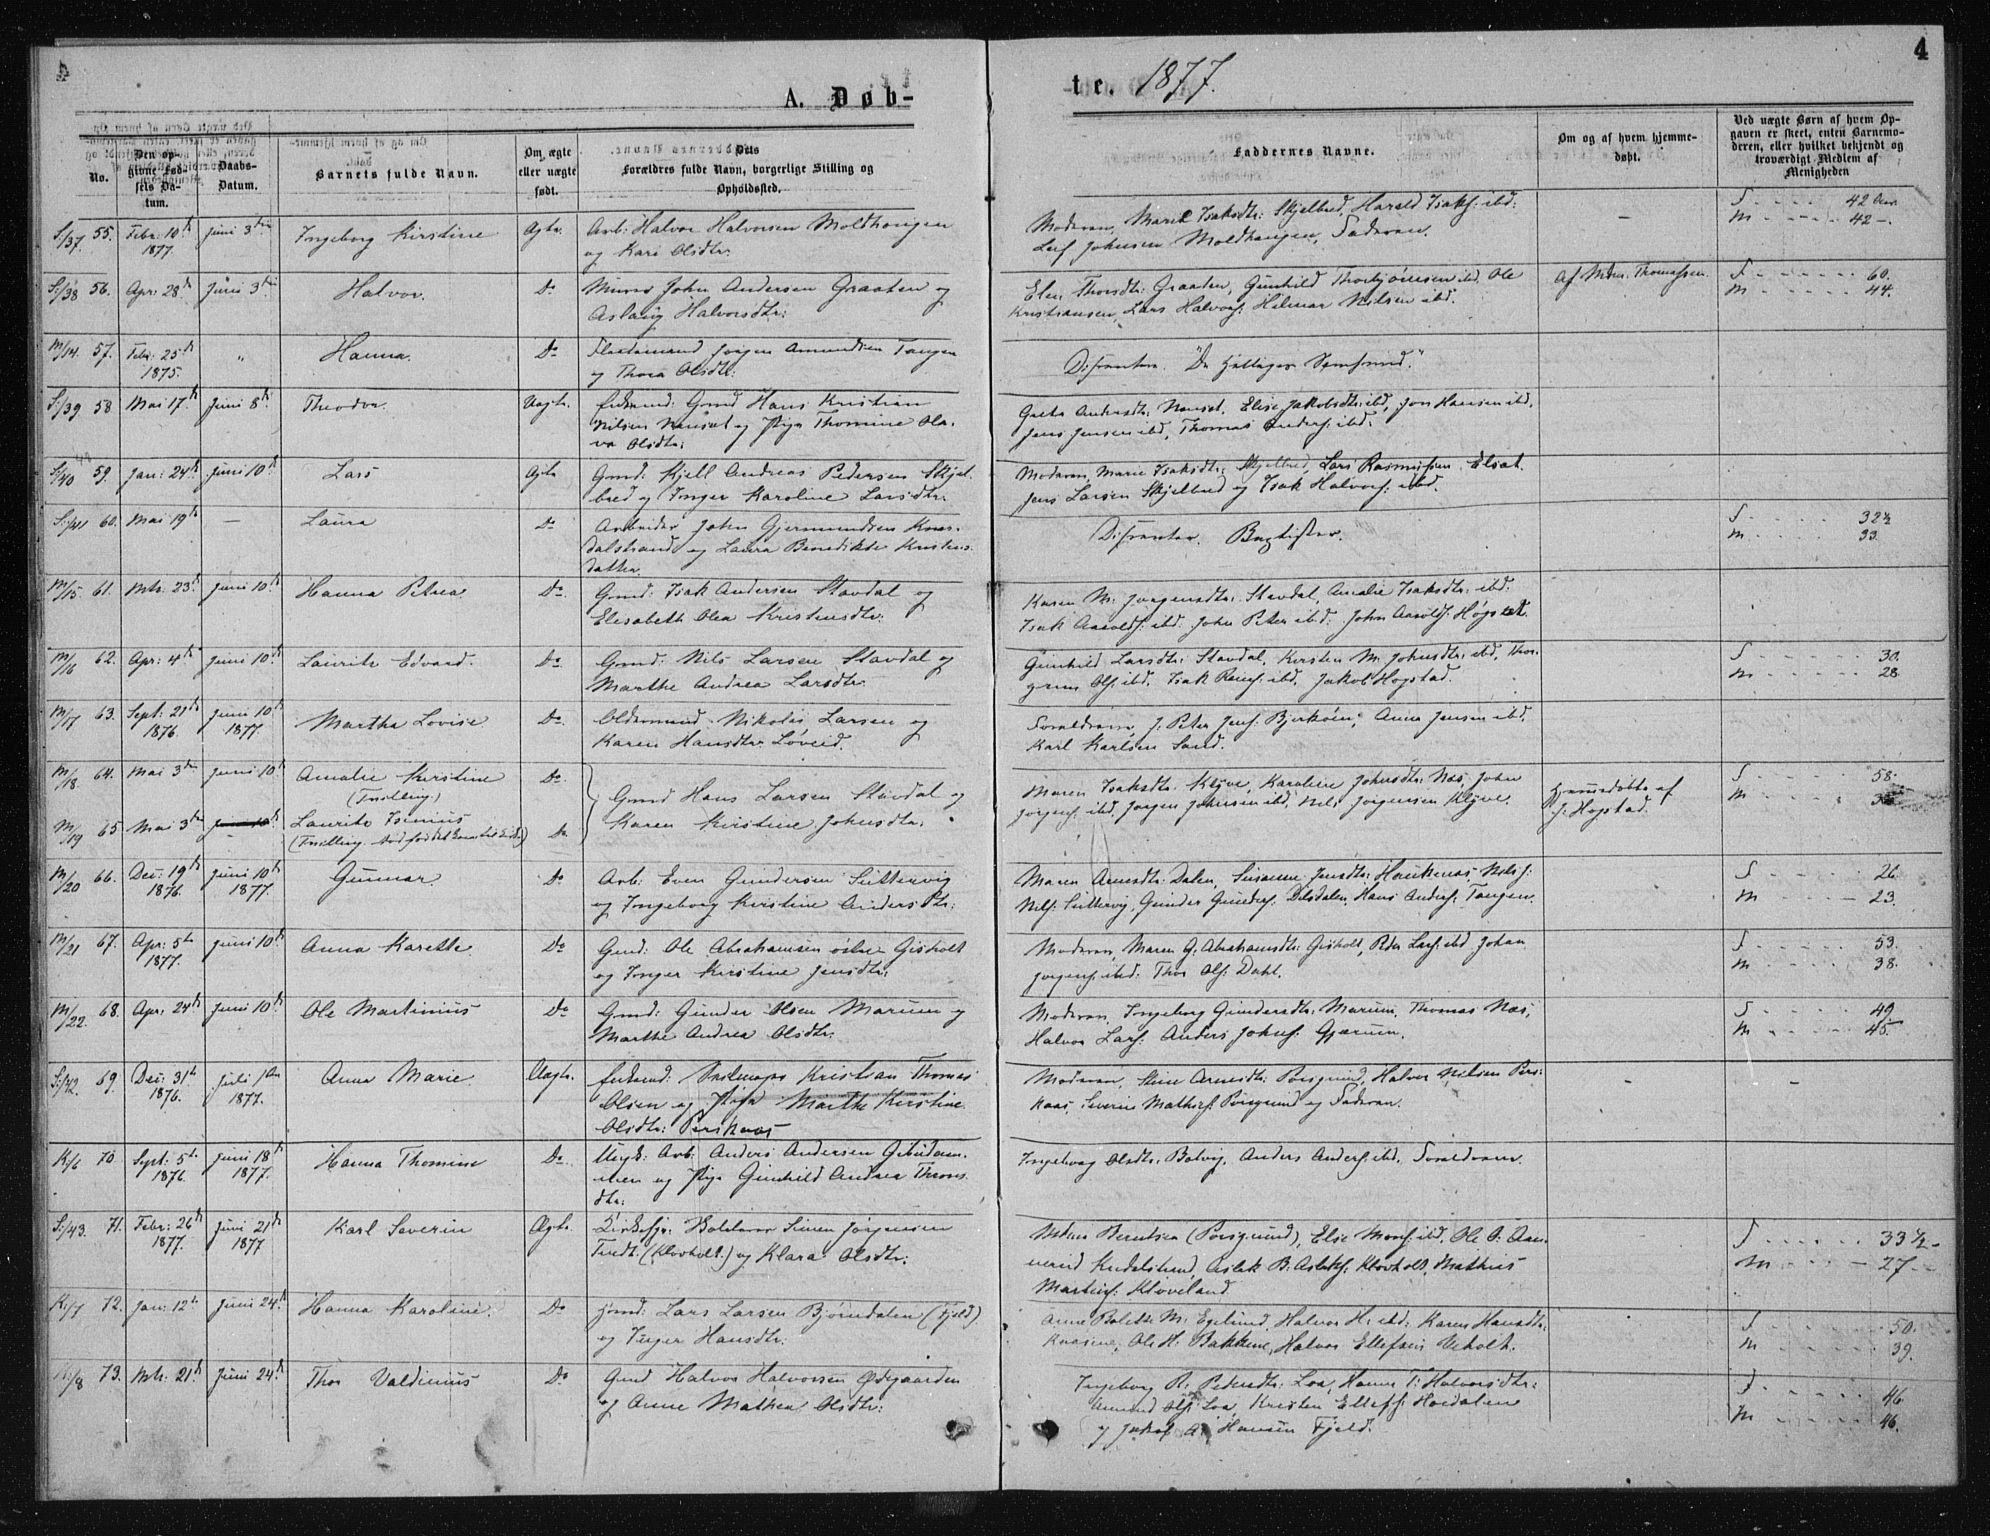 4
A. Døb-
te. 1877.
No.
Den op-
givne Fød-
sels Da-
tum.
Daabs-
Datum.
Barnets fulde Navn.
Om ægte
eller uægte
født.
Dets
Forældres fulde Navn, borgerlige Stilling og
Opholdssted.
Faddernes Navne.
Om og af hvem hjemme-
døbt.
Ved uægte Børn af hvem Op-
gaven er skeet, enten Barnemo-
deren, eller hvilket bekjendt og
troværdigt Medlem af
Menigheden
S/37. 55. Febr: 10de 1877. Juni 3die Ingeborg Kirstine Ægte. Arb: Halvor Halvorsen Moldhaugen
og Kari Olsdtr:
Moderen, Marie Isaksdtr: Skjelbred, Harald Isaks: ibd:
Lars Johnsen Moldhaugen, Faderen.
S 42
M 42
S/38 56. Apr: 28de Juni 3die Halvor. Do Murer John Andersen Graaten og
Aslaug Halvorsdtr:
Elen Thorsdtr: Graaten, Gunhild Thorbjørnsen ibd. Ole
Kristiansen, Lars Halvors: Hilmar Nilsen ibd.
Af Mdm. Thomassen.
S 60.
M 44.
M/14. 57. Febr: 25de 1875. " Hanna. Do Jørgen Amundsen Tangen
og Thora Olsdtr:
S/39 58 Mai 17de Juni 8de Theodor Uægte. Enkemd: Grmd Hans Kristian
Nilsen og Pige Thomine Ola-
va Olsdtr:
Jens Jensen ibd, Thomas Anders: ibd.
S/40 59. Jan: 24de Juni 10de Lars Ægte Grmd: Kjell Andreas Pedersen Skjel-
bred og Inger Karoline Larsdtr.
Moderen, Marie Isaksdtr: Skjelbred, Lars Rasmussen
Jens Larsen Skjelbred og Isak Halvors: ibd.
S/41 60. Mai 19de — Laura Do Arbeider John Gjermundsen
og Laura Benedikte Kristens-
datter.
Dissenter. Baptister.
S 32½
M 33.
M/15. 61. Mts: 23de Juni 10de Hanna Petrea. Do Grmd: Isak Andersen Stavdal og
Elisabeth Olea Kristensdtr:
Karen M. Jørgensdtr: Stavdal, Amalie Isaksdtr: ibd.
Isak Aarolds: ibd. John Peter ibd. John Aarolds: Høgstad.
M/16 62. Apr: 4de Juni 10de Lauritz Edvard. Do Grmd: Nils Larsen Stavdal og
Marthe Andrea Larsdtr:
Gunhild Larsdtr: Stavdal, Kirsten M. Johnsdtr: ibd. Thor-
grim Ols: ibd. Isak ibd. Jakob Høgstad.
S 30.
M 28.
M/17 63. Sept: 21de 1876. Juni 10de 1877 Martha Lovise Do Nikolai Larsen og
Karen Hansdtr: Løveid.
Forældrene, J. Peter Jens: Bjerkøen, Anna Jensen ibd.
Karl Karlsen Sand.
M/18. 64. Mai 3die Juni 10de Amalie Kirstine
(Tvilling)
Do.
Grmd Hans Larsen Stavdal og
Karen Kirstine Johnsdtr.
Maren Isaksdtr: Klyve, Karoline Johnsdtr: Næs, John
Jørgens: ibd, Jørgen Johnsen ibd, Nils Jørgensen Klyve.
Hjemmedøbt af
J. Høgstad.
S 58.
M
M/19 65. Mai 3die Laurits Do.
M/20 66. Dec: 19de 1876. Juni 10de 1877. Gunnar. Do Arb: Even Gundersen Suttervig
og Ingeborg Kirstine Andersdtr:
Maren Arnesdtr: Dalen, Susanne Jensdtr: Haukenæs, Nils
Nils: Suttervig, Gunder Gunders: Dalsdalen, Hans Anders: Tangen.
S 26.
M 23.
M/21 67. Apr: 5te 1877. Juni 10de Anna Karette. Do Grmd: Ole Abrahamsen østre Gisholt
og Inger Kirstine Jensdtr:
Moderen, Maren G. Abrahamsdtr: Gisholt, Peder Lars: ibd Johan
Jørgens: ibd: Thor Ols: Dahl.
S 53.
M 38.
M/22. 68. Apr: 24de Juni 10de Ole Martinius Do Grmd: Gunder Olsen Marum og
Marthe Andrea Olsdtr:
Moderen, Ingeborg Gundersdtr: Marum, Thomas Næs,
Halvor Lars: Anders Johns: Gjærum.
S 49.
M 45.
S/42. 69. Dec: 31te 1876. Juli 1ste 1877. Anna Marie. Uægte. Kristian Thomas
Olsen og Pige Marthe Kirstine
Olsdtr:
Moderen, Stine Arnesdtr: Porsgrund, Halvor Nilsen
Severin Mathis: Porsgrund og Faderen.
K/6 70 Sept: 5te 1876. Juni 18de 1877. Hanna Thomine Do. Ungk: Arb: Anders Andersen
og Pige Gunhild Andrea Throns-
dtr:
Ingeborg Olsdtr: Bolvig, Anders Anders: ibd. Forældrene.
S/43. 71. Febr: 26de 1877. Juni 21de 1877 Karl Severin Ægte. Simen Jørgensen
(Klovholt) og Klara Olsdtr:
Berntsen (Porsgrund), Else ibd, Ole
Aslak B. Aslaks: Klovholt, Mathias
Martins: Kloveland.
S 33½
M 27
K/7 72. Jan: 12te Juni 24de Hanna Karoline. Do Grmd: Lars Larsen Bjørndalen (Fjeld)
og Inger Hansdtr:
Anne Bolette M. Egelund, Halvor H. ibd: Karen Hansdtr:
Ole H. Bakkene, Halvor Ellefsen Veholt.
S 50.
M 39.
K/8 73. Mts: 21de Juni 24de Thor Valdinius Do Grmd Halvor Halvorsen Ødegaarden
og Anne Mathea Olsdtr:
Ingeborg R. Pedersdtr: Loa, Hanna T. Halvorsdtr:
Amund Ols: Loa, Kristen Ellefs: Høidalen
og Jakob A. Hansen Fjeld.
S 46
M 46.